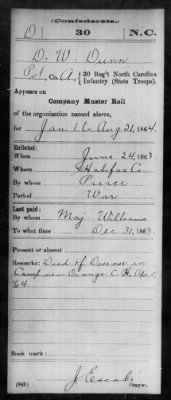 (Confederate.)
D 30 N.C.
D. W. Dunn
Pvt, Co. A, 30 Reg't North Carolina
Infantry (State Troops).
Appears on
Company Muster Roll
of the organization named above,
for Jan. 1 to Aug 31, 1864.
Enlisted:
When June 24, 1863.
Where Halifax Co.
By whom Pierce
Period War
Last paid:
By whom Maj. Williams
To what time Dec 31, 1863
Present or absent
Remarks: Died of Disease in
Camp near Orange C. H. Apr.
64.
Book mark:
(642) J. Escobi
Copyist.